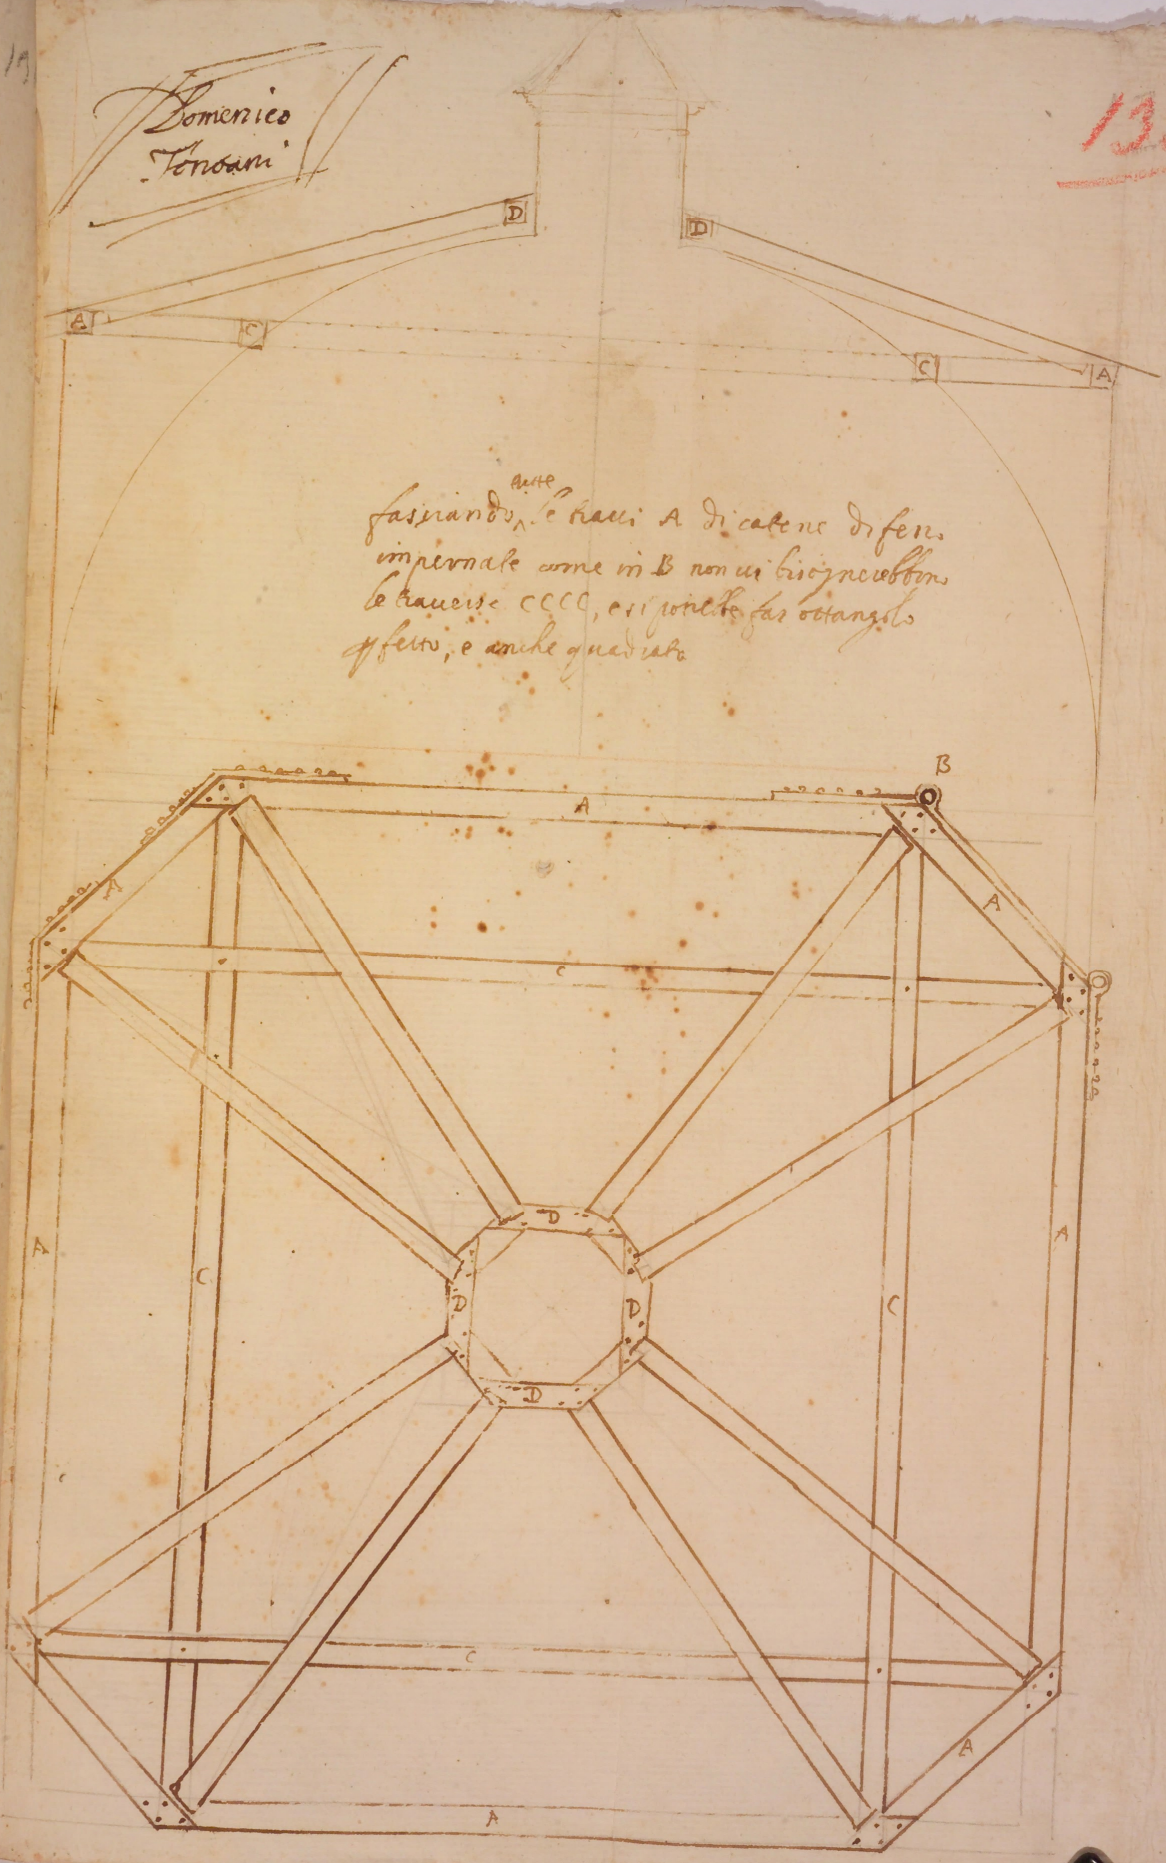 13
Domenico
D
D
A
C
C
A
tutte
fasciando le travi A di catene di ferro
impernate come in B non vi bisognerebbono
le traverse CCCC, e si potrebbe far ottangolo
pfetto, e anche quadrato
B
A
A
A
C
D
A
A
C
C
D
D
D
C
A
A